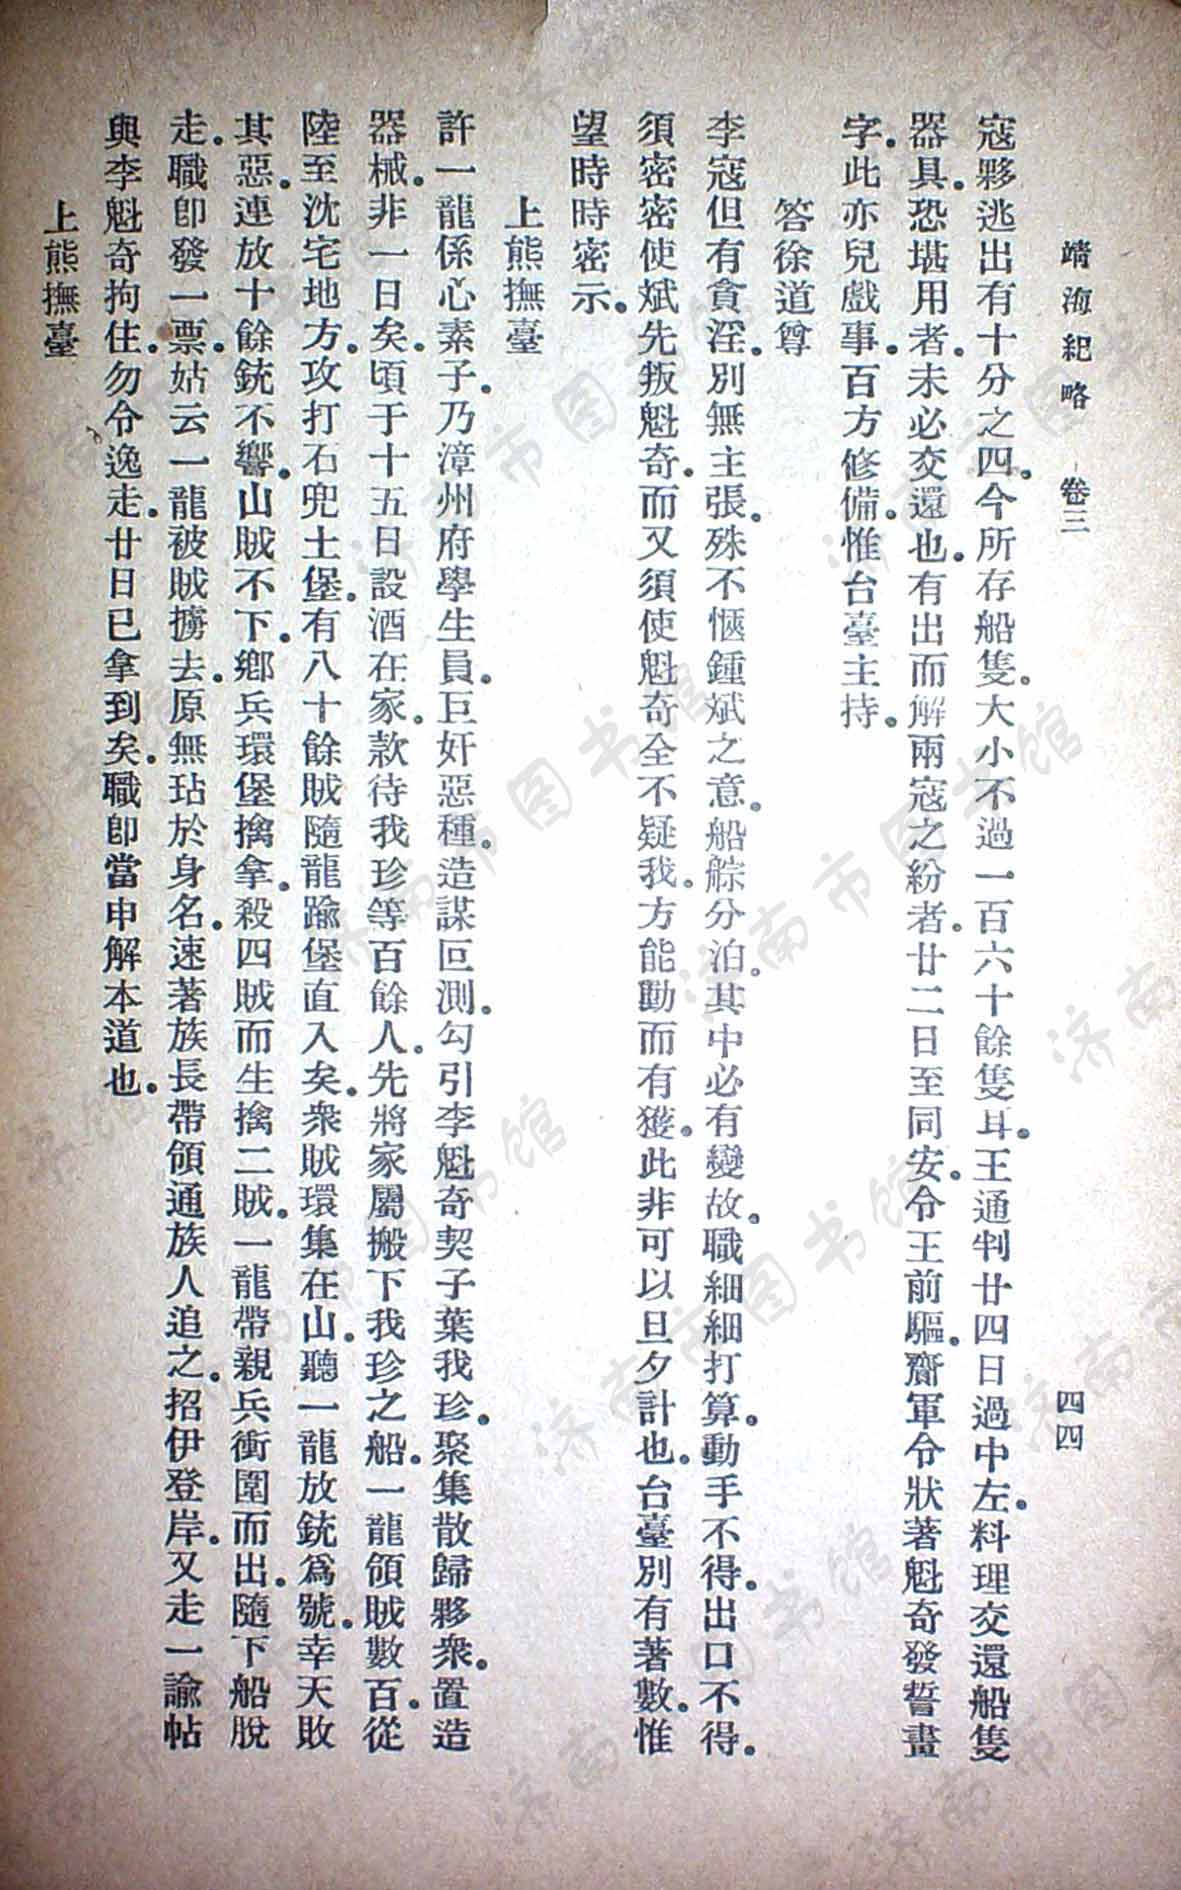 靖海紀略　卷三　四四
寇夥逃出有十分之四。今所存船隻。大小不過一百六十餘隻耳。王通判廿四日過中左。料理交還船隻
器具。恐堪用者。未必交還也。有出而解兩寇之紛者。廿二日至同安。令王前驅。齎軍令狀著魁奇發誓畫
字。此亦兒戲事。百方修備。惟台臺主持。
答徐道尊
李寇但有貪淫。別無主張。殊不愜鍾斌之意。船䑸分泊。其中必有變故。職細細打算。動手不得。出口不得。
須密密使斌先叛魁奇。而又須使魁奇全不疑我。方能動而有獲。此非可以旦夕計也。台臺別有著數。惟
望時時密示。
上熊撫臺
許一龍係心素子。乃漳州府學生員。巨奸惡種。造謀叵測。勾引李魁奇契子葉我珍。聚集散歸夥衆。置造
器械。非一日矣。頃于十五日設酒在家。款待我珍等百餘人。先將家屬搬下我珍之船。一龍領賊數百。從
陸至沈宅地方。攻打石兜土堡。有八十餘賊隨龍踰堡直入矣。衆賊環集在山。聽一龍放銃爲號。幸天敗
其惡。連放十餘銃不響。山賊不下。鄉兵環堡擒拿。殺四賊而生擒二賊。一龍帶親兵衝圍而出。隨下船脫
走。職卽發一票。姑云一龍被賊擄去。原無玷於身名。速著族長帶領通族人追之。招伊登岸。又走一諭帖
與李魁奇拘住。勿令逸走。廿日已拿到矣。職卽當申解本道也。
上熊撫臺
济南市图书馆